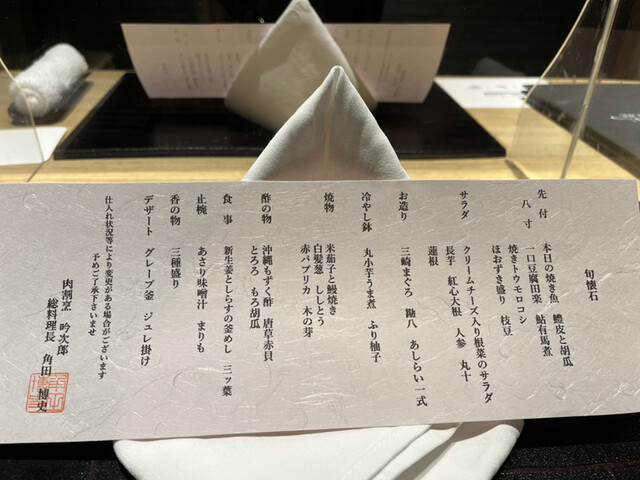 旬懐石
先付 本日の焼き魚 鱧皮と胡瓜
八寸 一口豆腐田楽 鮎有馬煮
焼きトウモロコシ
ほおずき盛り 枝豆
サラダ クリームチーズ入り根菜のサラダ
長芋 紅心大根 人参 丸十
蓮根
お造り 三崎まぐろ 勘八 あしらい一式
冷やし鉢 丸小芋うま煮 ふり柚子
焼物 米茄子と鰻焼き
白髪葱 ししとう
赤パプリカ 木の芽
酢の物 沖縄もずく酢 唐草赤貝
とろろ もろ胡瓜
食事 新生姜としらすの釜めし 三ッ葉
止椀 あさり味噌汁 まりも
香の物 三種盛り
デザート グレープ釜 ジュレ掛け
仕入れ状況等により変更がある場合がございます
予めご了承下さいませ
肉割烹 吟次郎
総料理長 角田 博史